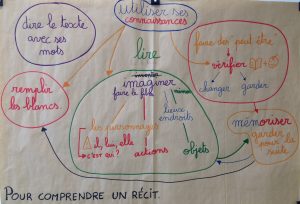 utiliser ses
connaissances
dire le texte
avec ses
mots
lire
faire des peut-être
vérifier
changer
garder
inventer
imaginer
faire le film
mimer
remplir
les blancs
lieux
endroits
les personnages
il, lui, elle
c'est qui?
actions
objets
mémoriser
garder
pour la
suite
POUR COMPRENDRE UN RÉCIT.